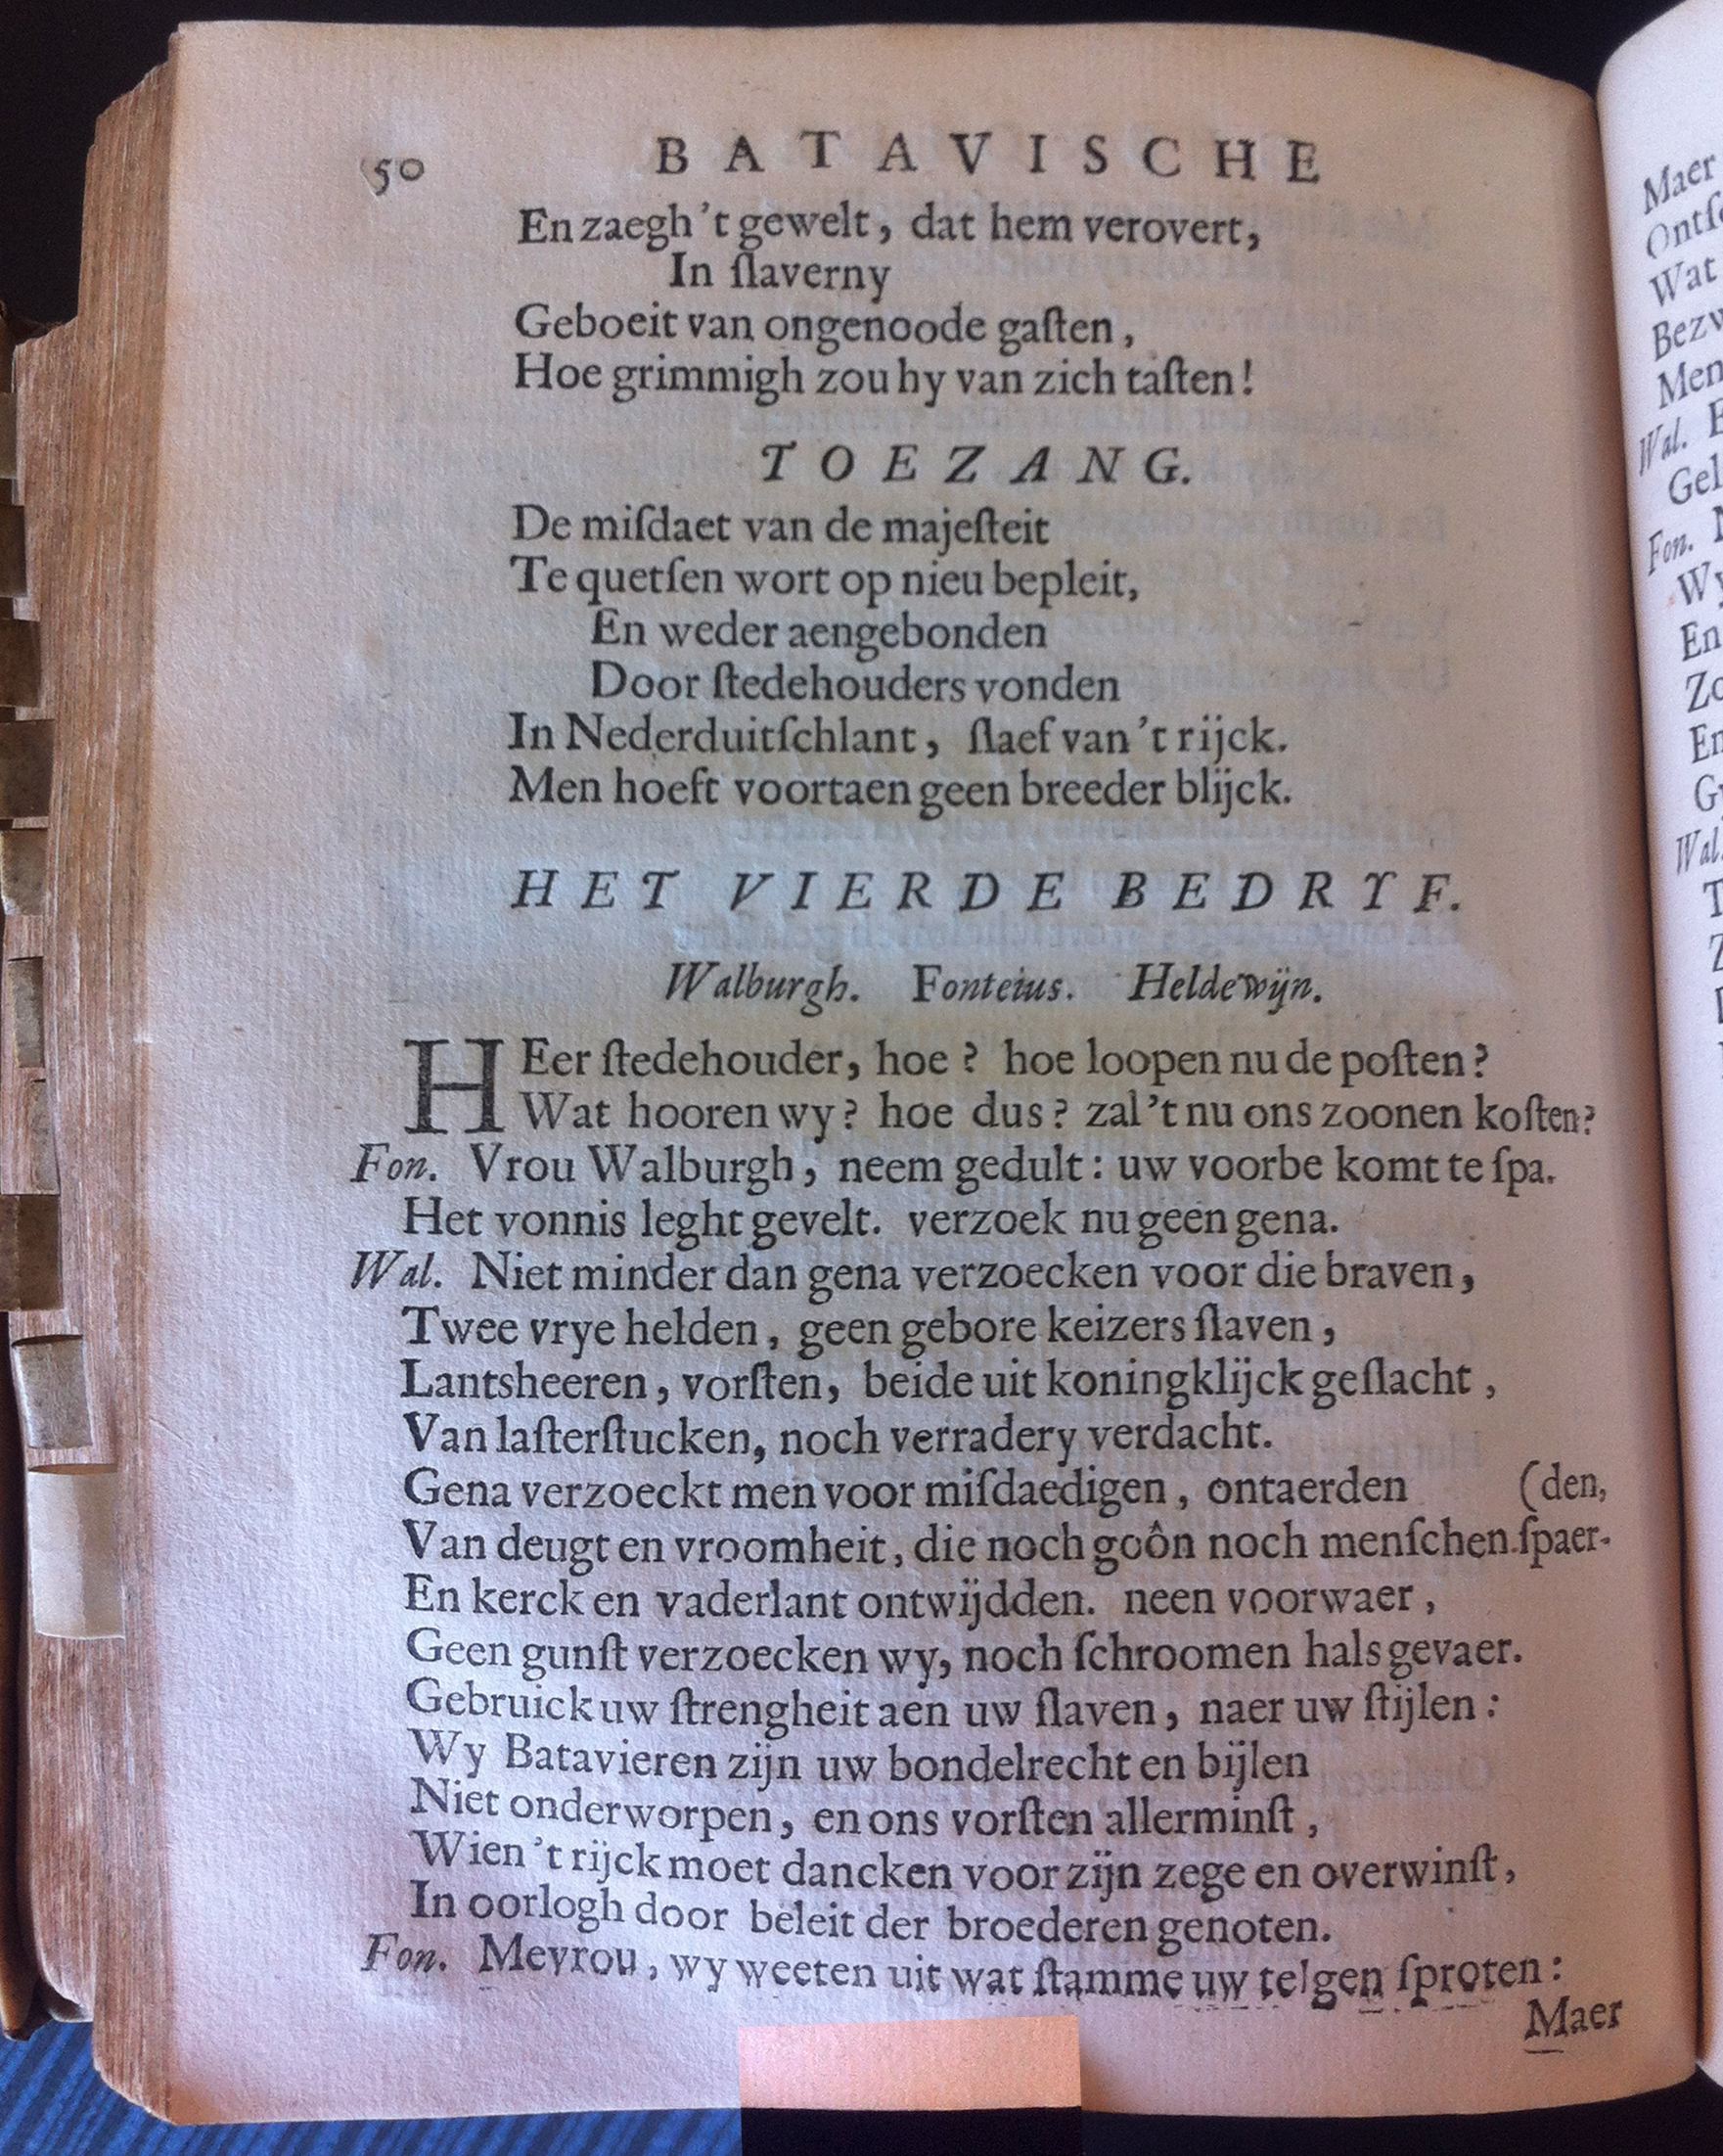 50 BATAVISCHE
En zaegh 't gewelt, dat hem verovert,
In ſlaverny
Geboeit van ongenoode gaſten,
Hoe grimmigh zou hy van zich taſten!
TOEZANG.
De miſdaet van de majeſteit
Te quetſen wort op nieu bepleit,
En weder aengebonden
Door ſtedehouders vonden
In Nederduitſchlant, ſlaef van 't rijck.
Men hoeft voortaen geen breeder blijck.
HET VIERDE BEDRYF.
Walburgh. Fonteius. Heldewijn.
HEer ſtedehouder, hoe? hoe loopen nu de poſten?
Wat hooren wy? hoe dus? zal 't nu ons zoonen koſten?
Fon. Vrou Walburgh, neem gedult: uw voorbe komt te ſpa.
Het vonnis leght gevelt. verzoek nu geen gena.
Wal. Niet minder dan gena verzoecken voor die braven,
Twee vrye helden, geen gebore keizers ſlaven,
Lantsheeren, vorſten, beide uit koningklijck geſlacht,
Van laſterſtucken, noch verradery verdacht.
Gena verzoeckt men voor miſdaedigen, ontaerden (den,
Van deugt en vroomheit, die noch goôn noch menſchen ſpaer-
En kerck en vaderlant ontwijdden. neen voorwaer,
Geen gunſt verzoecken wy, noch ſchroomen hals gevaer.
Gebruick uw ſtrengheit aen uw ſlaven, naer uw ſtijlen:
Wy Batavieren zijn uw bondelrecht en bijlen
Niet onderworpen, en ons vorſten allerminſt,
Wien 't rijck moet dancken voor zijn zege en overwinſt,
In oorlogh door beleit der broederen genoten.
Fon. Mevrou, wy weeten uit wat ſtamme uw telgen ſproten:
Maer
Maer
Wat
Men
Wal.
Gel
Fon.
Wy
En
Wal.